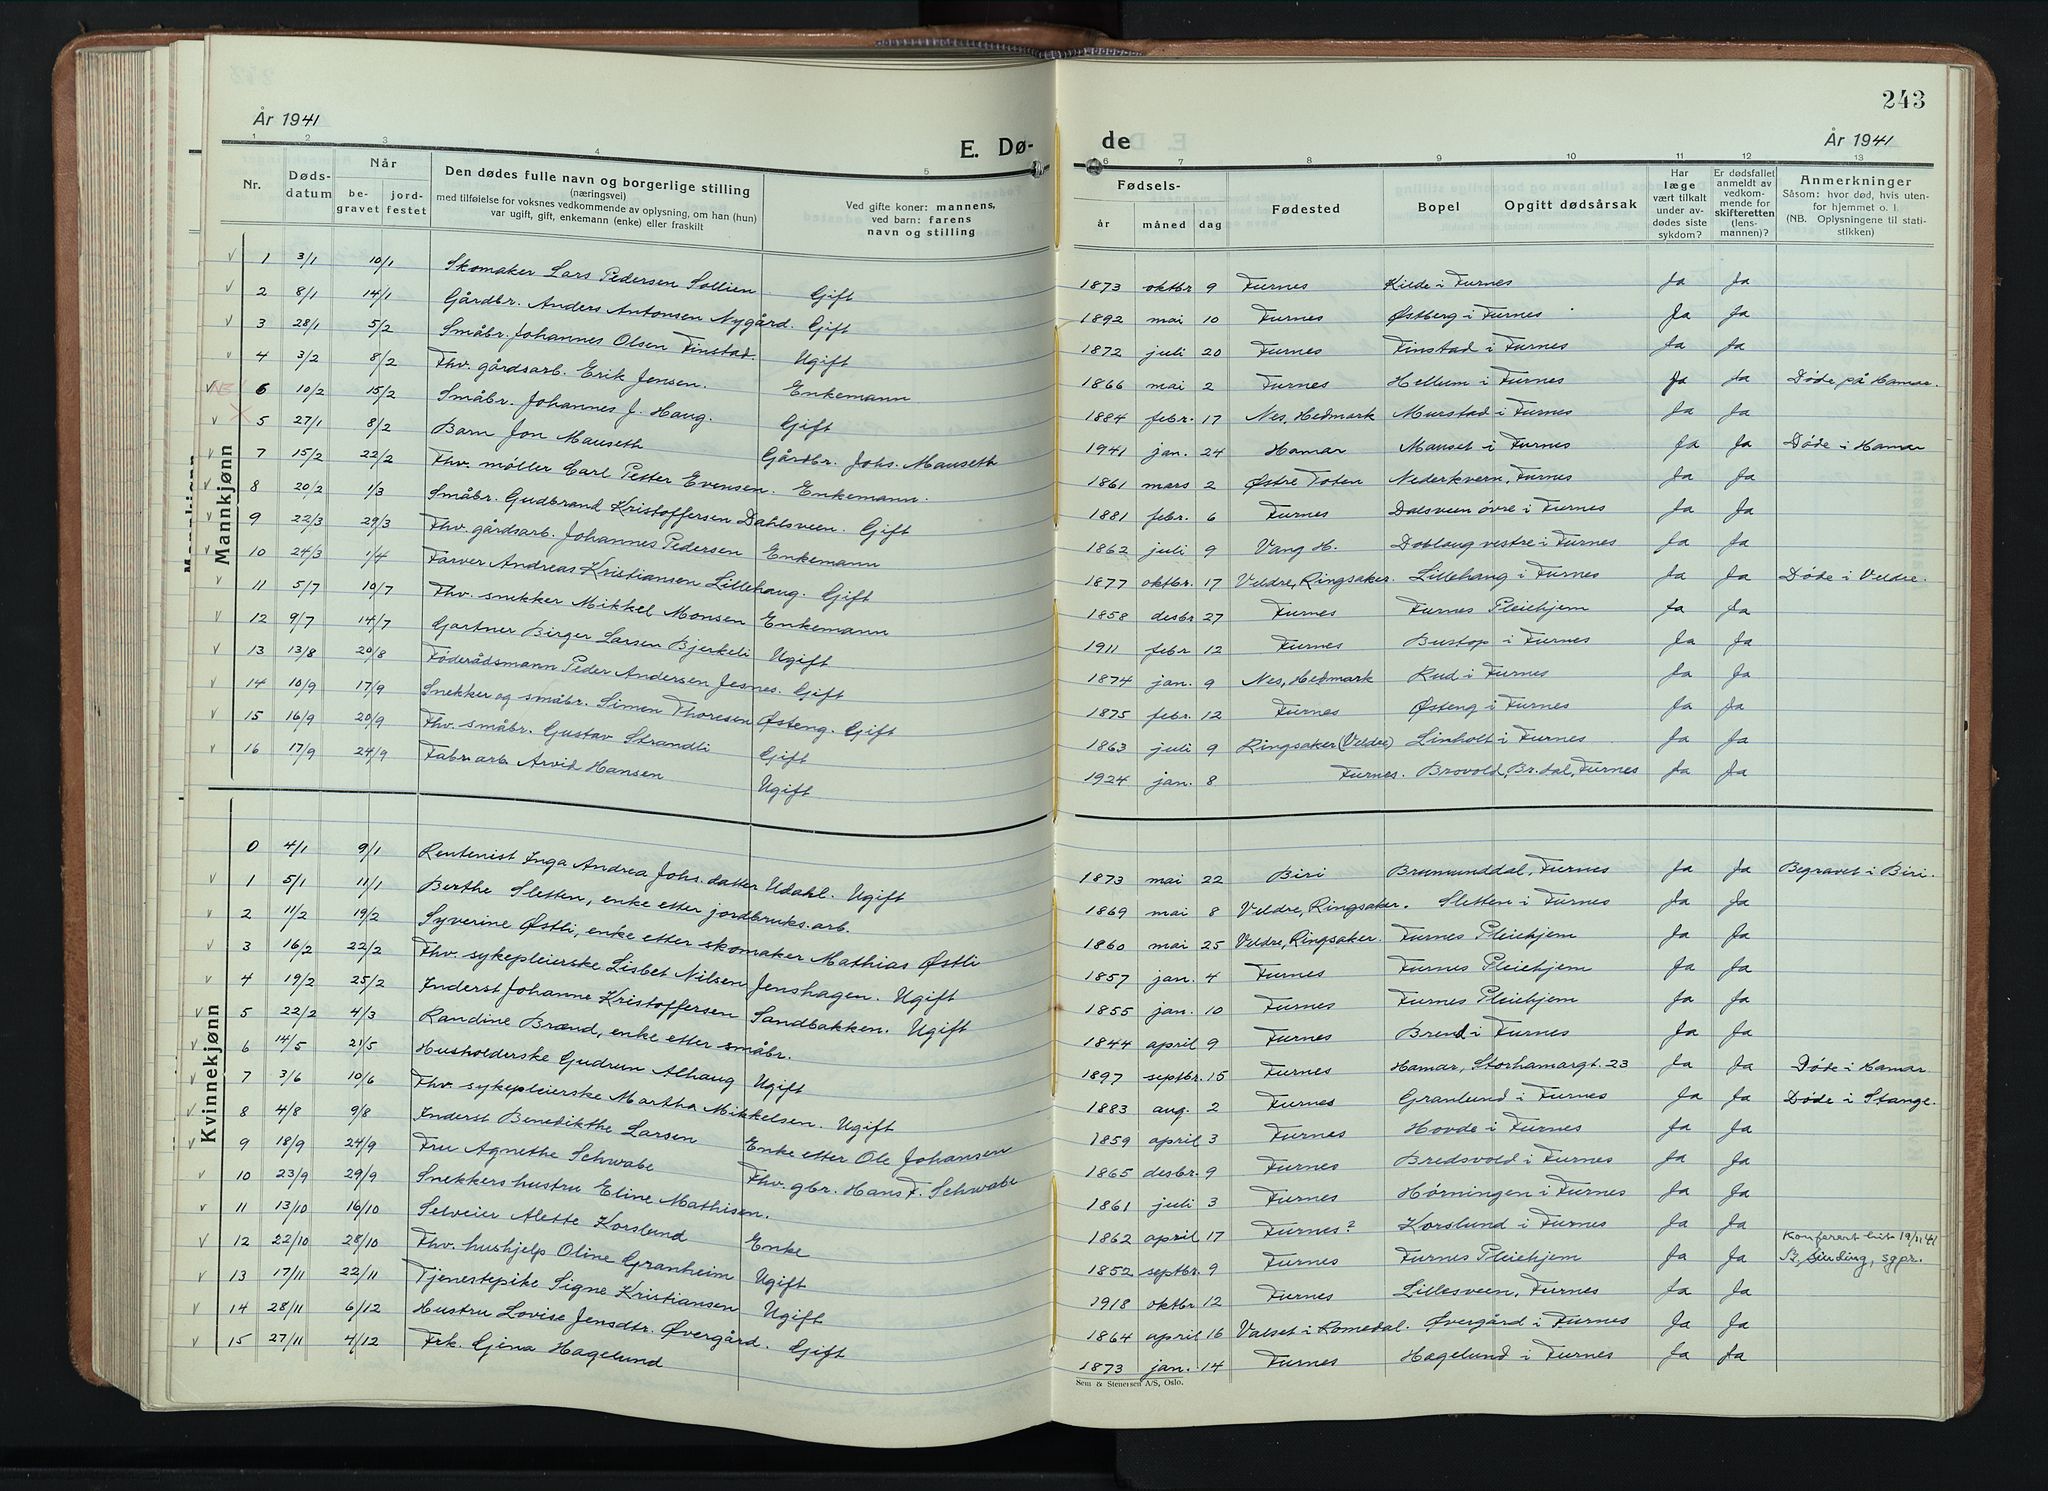 243
År 1941
E. Dø-
de
År 1941
1 2 3 4 5 6 7 8 9 10 11 12 13
Nr. Døds-datum Når be-gravet jord-festet
Den dødes fulle navn og borgerlige stilling
(næringsvei)
med tilføielse for voksnes vedkommende av oplysning, om han (hun)
var ugift, gift, enkemann (enke) eller fraskilt
Ved gifte koner: mannens,
ved barn: farens
navn og stilling
Fødsels- år måned dag
Fødested
Bopel
Opgitt dødsårsak
Har læge vært tilkalt under av-dødes siste sykdom?
Er dødsfallet anmeldt av vedkom-mende for skifteretten (lens-mannen)?
Anmerkninger
Såsom: hvor død, hvis uten-
for hjemmet o. l.
(NB. Oplysningene til stati-
stikken)
Mannkjønn
1 3/1 10/1 Skomaker Lars Pedersen Sollien Gift 1873 oktbr 9 Furnes Kilde i Furnes Ja Ja
2 8/1 14/1 Gårdbr. Anders Antonsen Nygård. Gift 1892 mai 10 Furnes Østberg i Furnes Ja Ja
3 28/1 5/2 Småbr. Johannes Olsen Finstad. Ugift 1872 juli 20 Furnes Finstad i Furnes Ja Ja
4 3/2 8/2 Fhv. gårdsarb. Erik Jensen. Enkemann 1866 mai 2 Furnes Hellum i Furnes Ja Ja Døde på Hamar.
NB 6 10/2 15/2 Småbr. Johannes J. Haug. Gift 1884 febr. 17 Nes, Hedmark Murstad i Furnes Ja Ja
5 27/1 8/2 Barn Jon Mauseth Gårdbr. Johs. Mauseth 1941 jan. 24 Hamar Mauset i Furnes Ja Ja Døde i Hamar
7 15/2 22/2 Fhv. møller Carl Petter Evensen. Enkemann. 1861 mars 2 Østre Toten Nederkvern, Furnes Ja Ja
8 20/2 1/3 Småbr. Gudbrand Kristoffersen Dahlsveen. Gift 1881 febr. 6 Furnes Dalsveen øvre i Furnes Ja Ja
9 22/3 29/3 Fhv. gårdsarb. Johannes Pedersen Enkemann 1862 juli 9 Vang H. Doblaug vestre i Furnes Ja Ja
10 24/3 1/4 Farver Andreas Kristiansen Lillehaug. Gift 1877 oktbr. 17 Veldre, Ringsaker. Lillehaug i Furnes Ja Ja Døde i Veldre.
11 5/7 10/7 Fhv. snekker Mikkel Monsen Enkemann 1858 desbr 27 Furnes Furnes Pleiehjem Ja Ja
12 9/7 14/7 Gartner Birger Larsen Bjerkeli Ugift 1911 febr 12 Furnes Bustop i Furnes Ja Ja
13 13/8 20/8 Føderådsmann Peder Andersen Jesnes. Gift 1874 jan. 9 Nes, Hedmark Rud i Furnes Ja Ja
14 10/9 17/9 Snekker og småbr. Simen Thoresen Østeng. Gift 1875 febr. 12 Furnes Østeng i Furnes Ja Ja
15 16/9 20/9 Fhv. småbr. Gustav Strandli Gift 1863 juli 9 Ringsaker (Veldre) Linholt i Furnes Ja Ja
16 17/9 24/9 Fabr. arb. Arvid Hansen Ugift 1924 jan. 8 Furnes. Brovold, Br.dal, Furnes Ja Ja
Kvinnekjønn
0 4/1 9/1 Rentenist Inga Andrea Johs. datter Udahl. Ugift 1873 mai 22 Biri Brumunddal, Furnes Ja Ja Begravet i Biri.
1 5/1 11/1 Berthe Sletten, enke etter jordbruks.arb. 1869 mai 8 Veldre, Ringsaker. Sletten i Furnes Ja Ja
2 11/2 19/2 Syverine Østli, enke etter skomaker Mathias Østli 1860 mai 25 Veldre, Ringsaker. Furnes Pleiehjem Ja Ja
3 16/2 22/2 Fhv. sykepleierske Lisbet Nilsen Jenshagen. Ugift 1857 jan. 4 Furnes Furnes Pleiehjem Ja Ja
4 19/2 25/2 Inderst Johanne Kristoffersen Sandbakken. Ugift 1855 jan. 10 Furnes Furnes Pleiehjem Ja Ja
5 22/2 4/3 Randine Brænd, enke etter småbr. 1844 april 9 Furnes Brend i Furnes Ja Ja
6 14/5 21/5 Husholderske Gudrun Alhaug Ugift 1897 septbr. 15 Furnes Hamar, Storhamargt. 23 Ja Ja Døde i Hamar.
7 3/6 10/6 Fhv. sykepleierske Martha Mikkelsen. Ugift 1883 aug. 2 Furnes Granlund i Furnes Ja Ja Døde i Stange.
8 4/8 9/8 Inderst Benedikthe Larsen Enke etter Ole Johansen 1859 april 3 Furnes Hovde i Furnes Ja Ja
9 18/9 24/9 Fru Agnethe Schwabe Fhv. gbr. Hans F. Schwabe 1865 desbr. 9 Furnes Bredsvold i Furnes Ja Ja
10 23/9 29/9 Snekkers hustru Eline Mathisen. 1861 juli 3 Furnes Hørningen i Furnes Ja Ja
11 13/10 16/10 Selveier Alette Korslund Enke 1862 april 17 Furnes? Korslund i Furnes Ja Ja
12 22/10 28/10 Fhv. hushjelp Oline Granheim Ugift 1852 septbr. 9 Furnes Furnes Pleiehjem Ja Ja Konferert hit 19/11 41
sgpr.
13 17/11 22/11 Tjenestepike Signe Kristiansen Ugift 1918 oktbr 12 Furnes Lillesveen, Furnes Ja Ja
14 28/11 6/12 Hustru Lovise Jensdtr. Øvergård. Gift 1864 april 16 Valset i Romedal. Øvergård i Furnes Ja Ja
15 27/11 4/12 Frk. Gjena Hagelund 1873 jan. 14 Furnes Hagelund i Furnes Ja Ja
Sem & Stenersen A/S, Oslo.